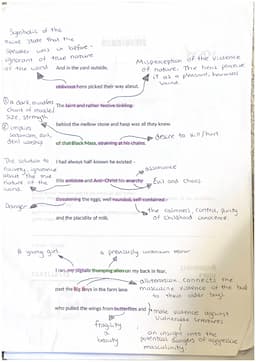 Symbolic of the
naive state that the
speaker was in before -
ignorant of true nature
of the world
And in the yard outside,
Misperception of the violence
of nature. The hens perceive
it as a pleasant, harmless
sound.
oblivious hens picked their way about.
① a dark, muscles
Size, strength
The faint and rather festive tinkling
behind the mellow stone and hasp was all they knew
② implies
Satanism, evil,
devil worship
of that Black Mass, straining at his chains.
desire to kill/hurt
I had always half-known he existed -
The solution to
naivety, ignorance
about the true
nature of the
world.
assonance
this antidote and Anti-Christ his anarchy
Evil and chaos
Danger
threatening the eggs, well rounded, self-contained -
and the placidity of milk.
the calmness, control, purity
of childhood innocence
a young girl
a previously unknown terror
I ran, my pigtails thumping alien on my back in fear,
past the Big Boys in the farm lane
alliteration, connects the
masculine violence of the bull
to these older boys
who pulled the wings from butterflies and
male violence against
vulnerable creatures
fragility
&
beauty
an insight into the
potential dangers of aggressive
masculinity.